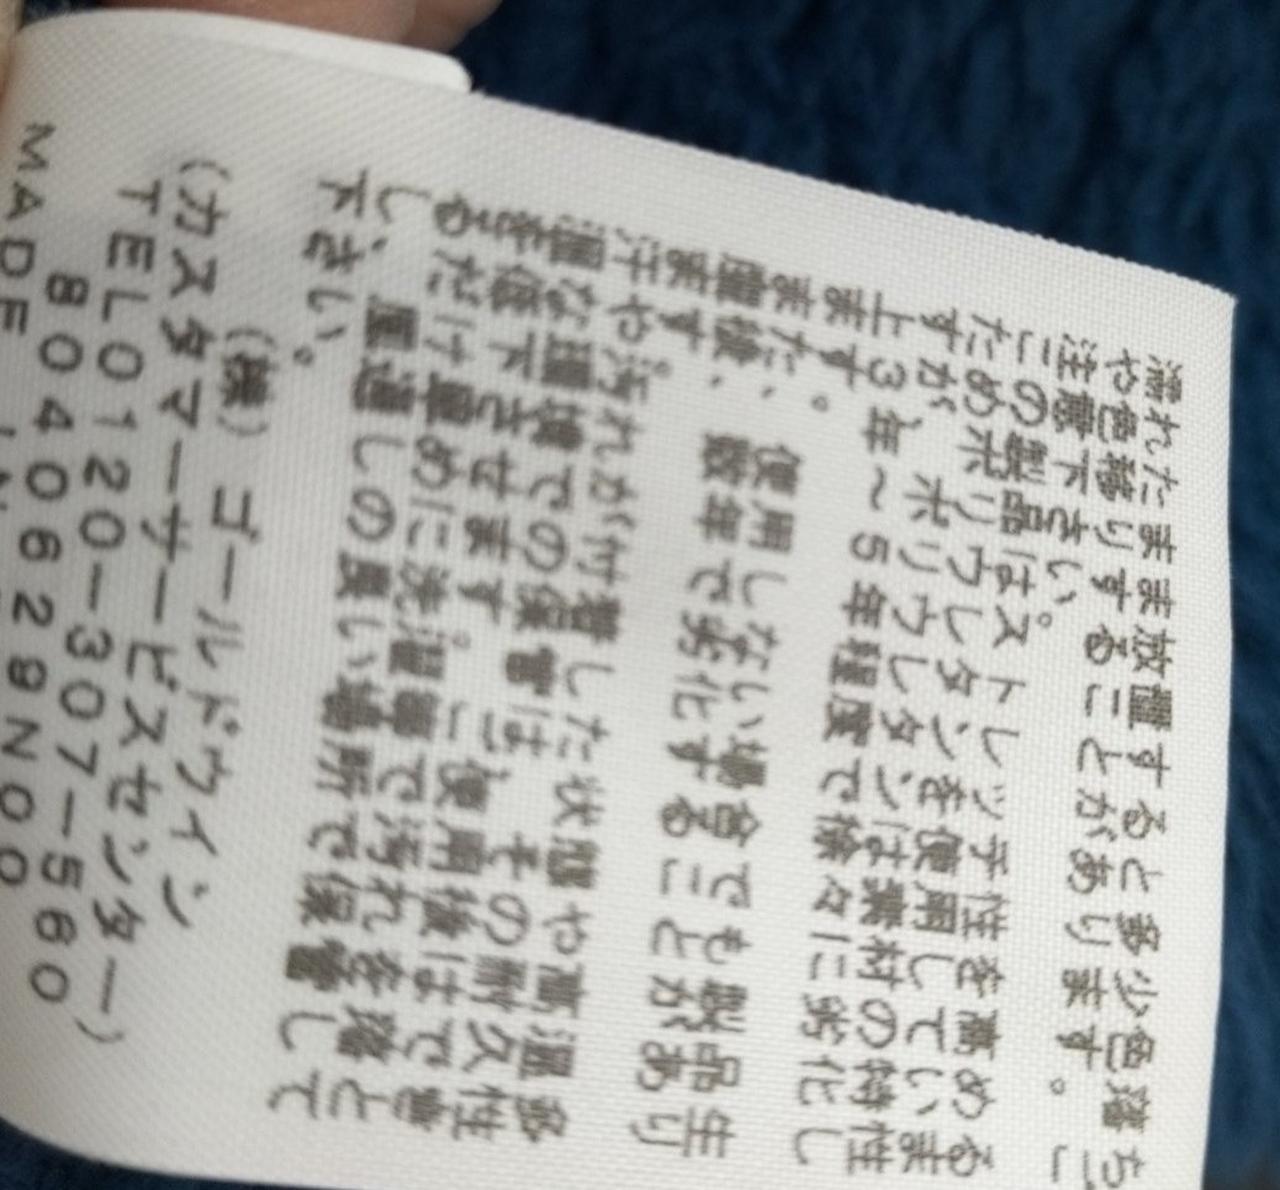 濡れたまま放置すると多少色落ち
や色移りすることがあります。ご
注意下さい。
この製品はストレッチ性を高める
ためポリウレタンを使用していま
すが、ポリウレタンは素材の特性
上3年～5年程度で徐々に劣化し
ます。
また、使用しない場合でも製品生
産後、数年で劣化することがあり
ます。
汗や汚れが付着した状態や高温多
湿な環境での保管は、その耐久性
を低下させます。ご使用後はでき
るだけ早めに洗濯等で汚れを落と
し、風通しの良い場所で保管して
下さい。
(株)ゴールドウイン
(カスタマーサービスセンター)
TEL0120-307-560
8040629N00
MADE IN